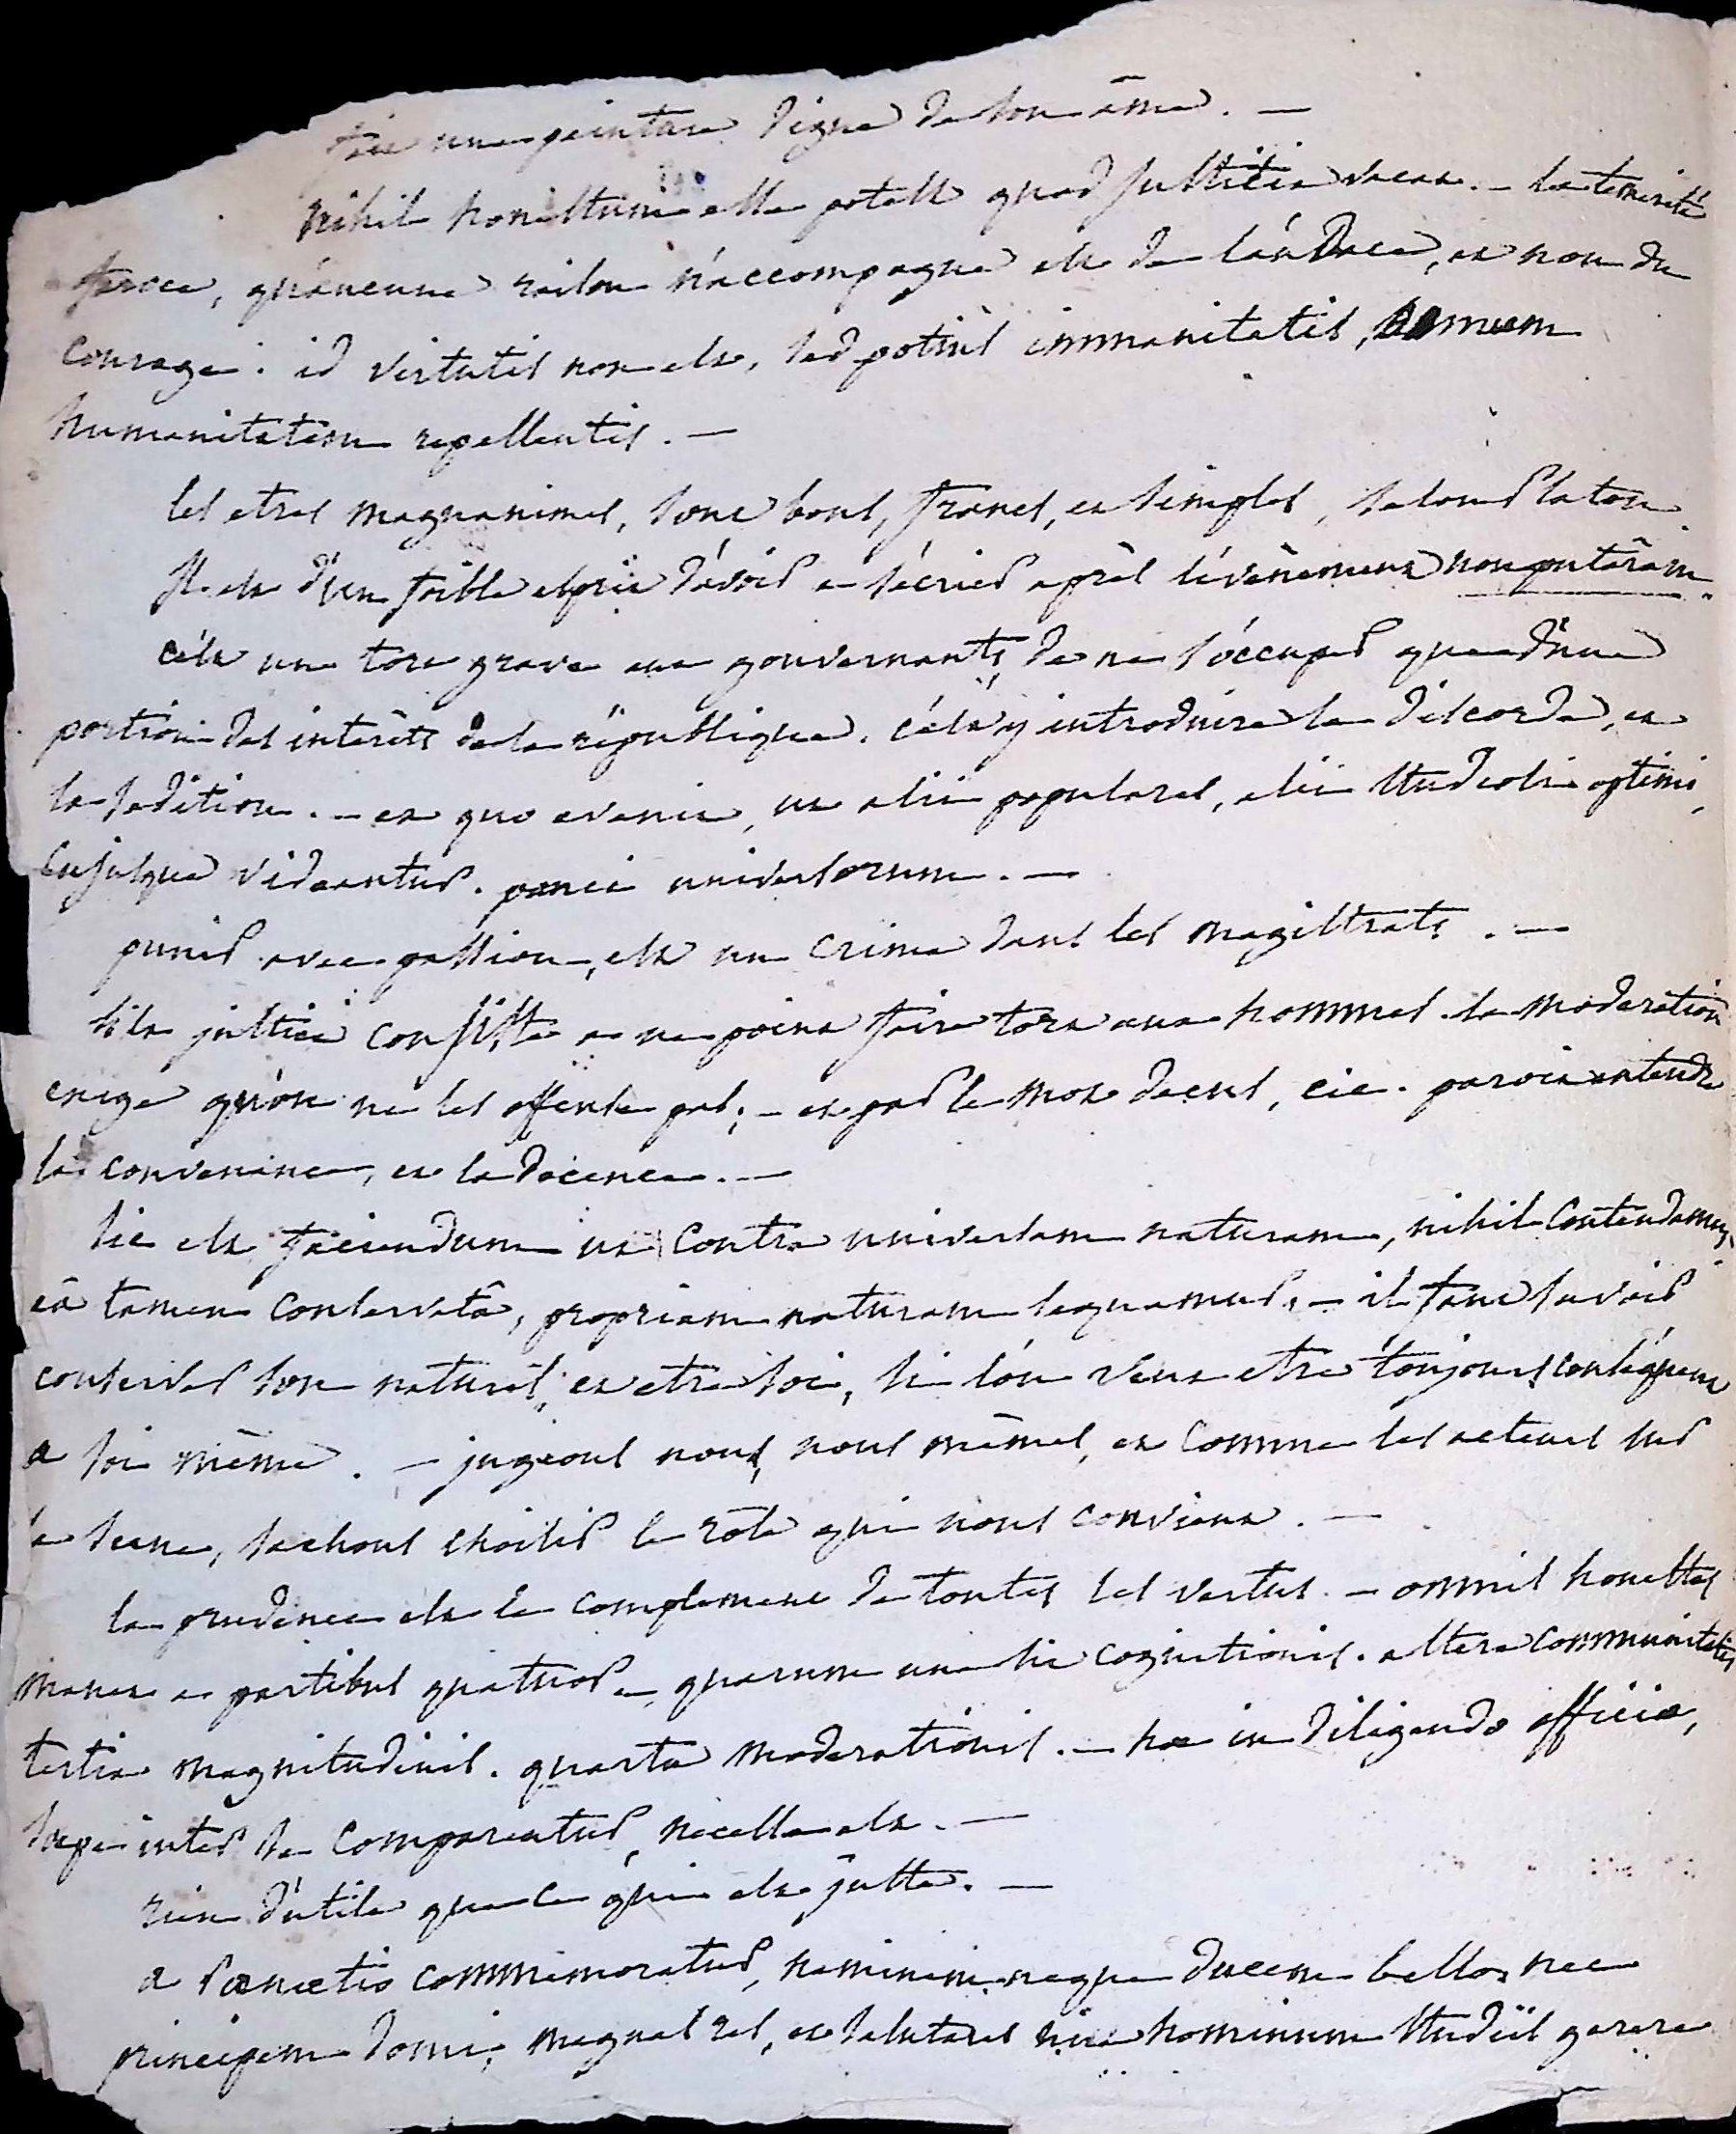 fait une peinture digne de son âme. —
nihil honestum esse potest quod justitia vacat. — la temerité
feroce, qu'aucune raison n'accompagne est de l'audace, et non du
courage. id virtutis non est, sed potius immanitatis, omnem
humanitatem repellentis. —
les etres magnanimes, sont bons, francs, et simples, selon Platon.
Il est d'un foible esprit d'avoir a s'écrier après l'évènement non putâram.
c'est un tort grave aux gouvernants, de ne s'occuper que d'une
portion des interêts de la république. c'est y introduire la discorde, et
la sedition. — ex quo evenit, ut alii populares, alii studiosi optimi,
cujusque videantur. pauci universorum. —
punir avec passion, est un crime dans les magistrats. —
si la justice consiste a ne point faire tort aux hommes. la moderation
exige qu'on ne les offense pas; — et par le mot decus, cic. paroit entendre
la convenance, et la decence. —
sic est faciendum ut contra universam naturam, nihil contendamus,
eâ tamen conservatâ, propriam naturam sequamur. — il faut savoir
conserver son naturel, et etre soi, si l'on veut etre toujours conséquent
a soi même. — jugeons nous, nous mêmes, et comme les acteurs sur
la scene, sachons choisir le rôle qui nous convient. —
la prudence est le complement de toutes les vertus. — omnis honestas
manat a partibus quatuor — quarum una sit cognitionis. altera communitatis
tertia magnitudinis. quarta moderationis. — hae in diligendo officio,
saepe inter se comparentur, necesse est. —
rien d'utile que ce qui est juste. —
a Panaetio commemoratur, neminem neque ducem bello, nec
principem domi, magnas res, et salutares sine hominum studiis gerere